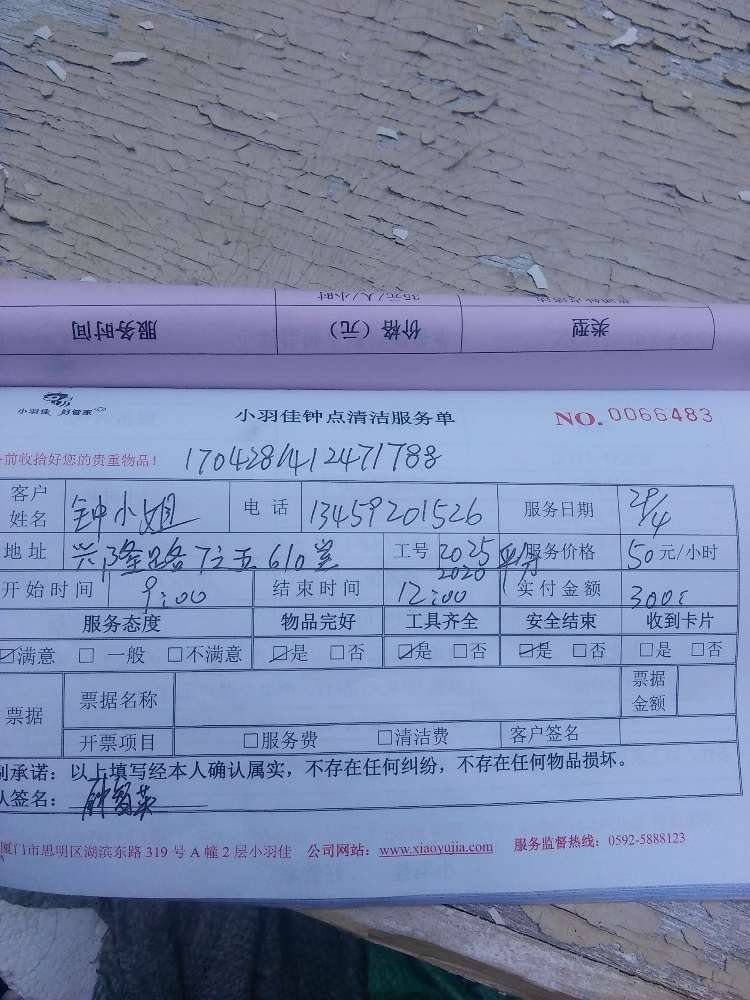 类型 价格（元） 服务时间
小羽佳 好管家 小羽佳钟点清洁服务单 NO.0066483
前收拾好您的贵重物品！ 170428141247178
客户姓名 钟小姐 电话 13459201526 服务日期 29/4
地址 兴隆路7之五610室 工号 2025 2020 平分 服务价格 50元/小时
开始时间 9:00 结束时间 12:00 实付金额 300
服务态度 物品完好 工具齐全 安全结束 收到卡片
☑满意 □一般 □不满意 ☑是 □否 ☑是 □否 ☑是 □否 □是 □否
票据 票据名称 票据金额
开票项目 □服务费 □清洁费 客户签名
承诺：以上填写经本人确认属实，不存在任何纠纷，不存在任何物品损坏。
签名：
厦门市思明区湖滨东路319号A幢2层小羽佳 公司网站：www.xiaoyujia.com 服务监督热线：0592-5888123